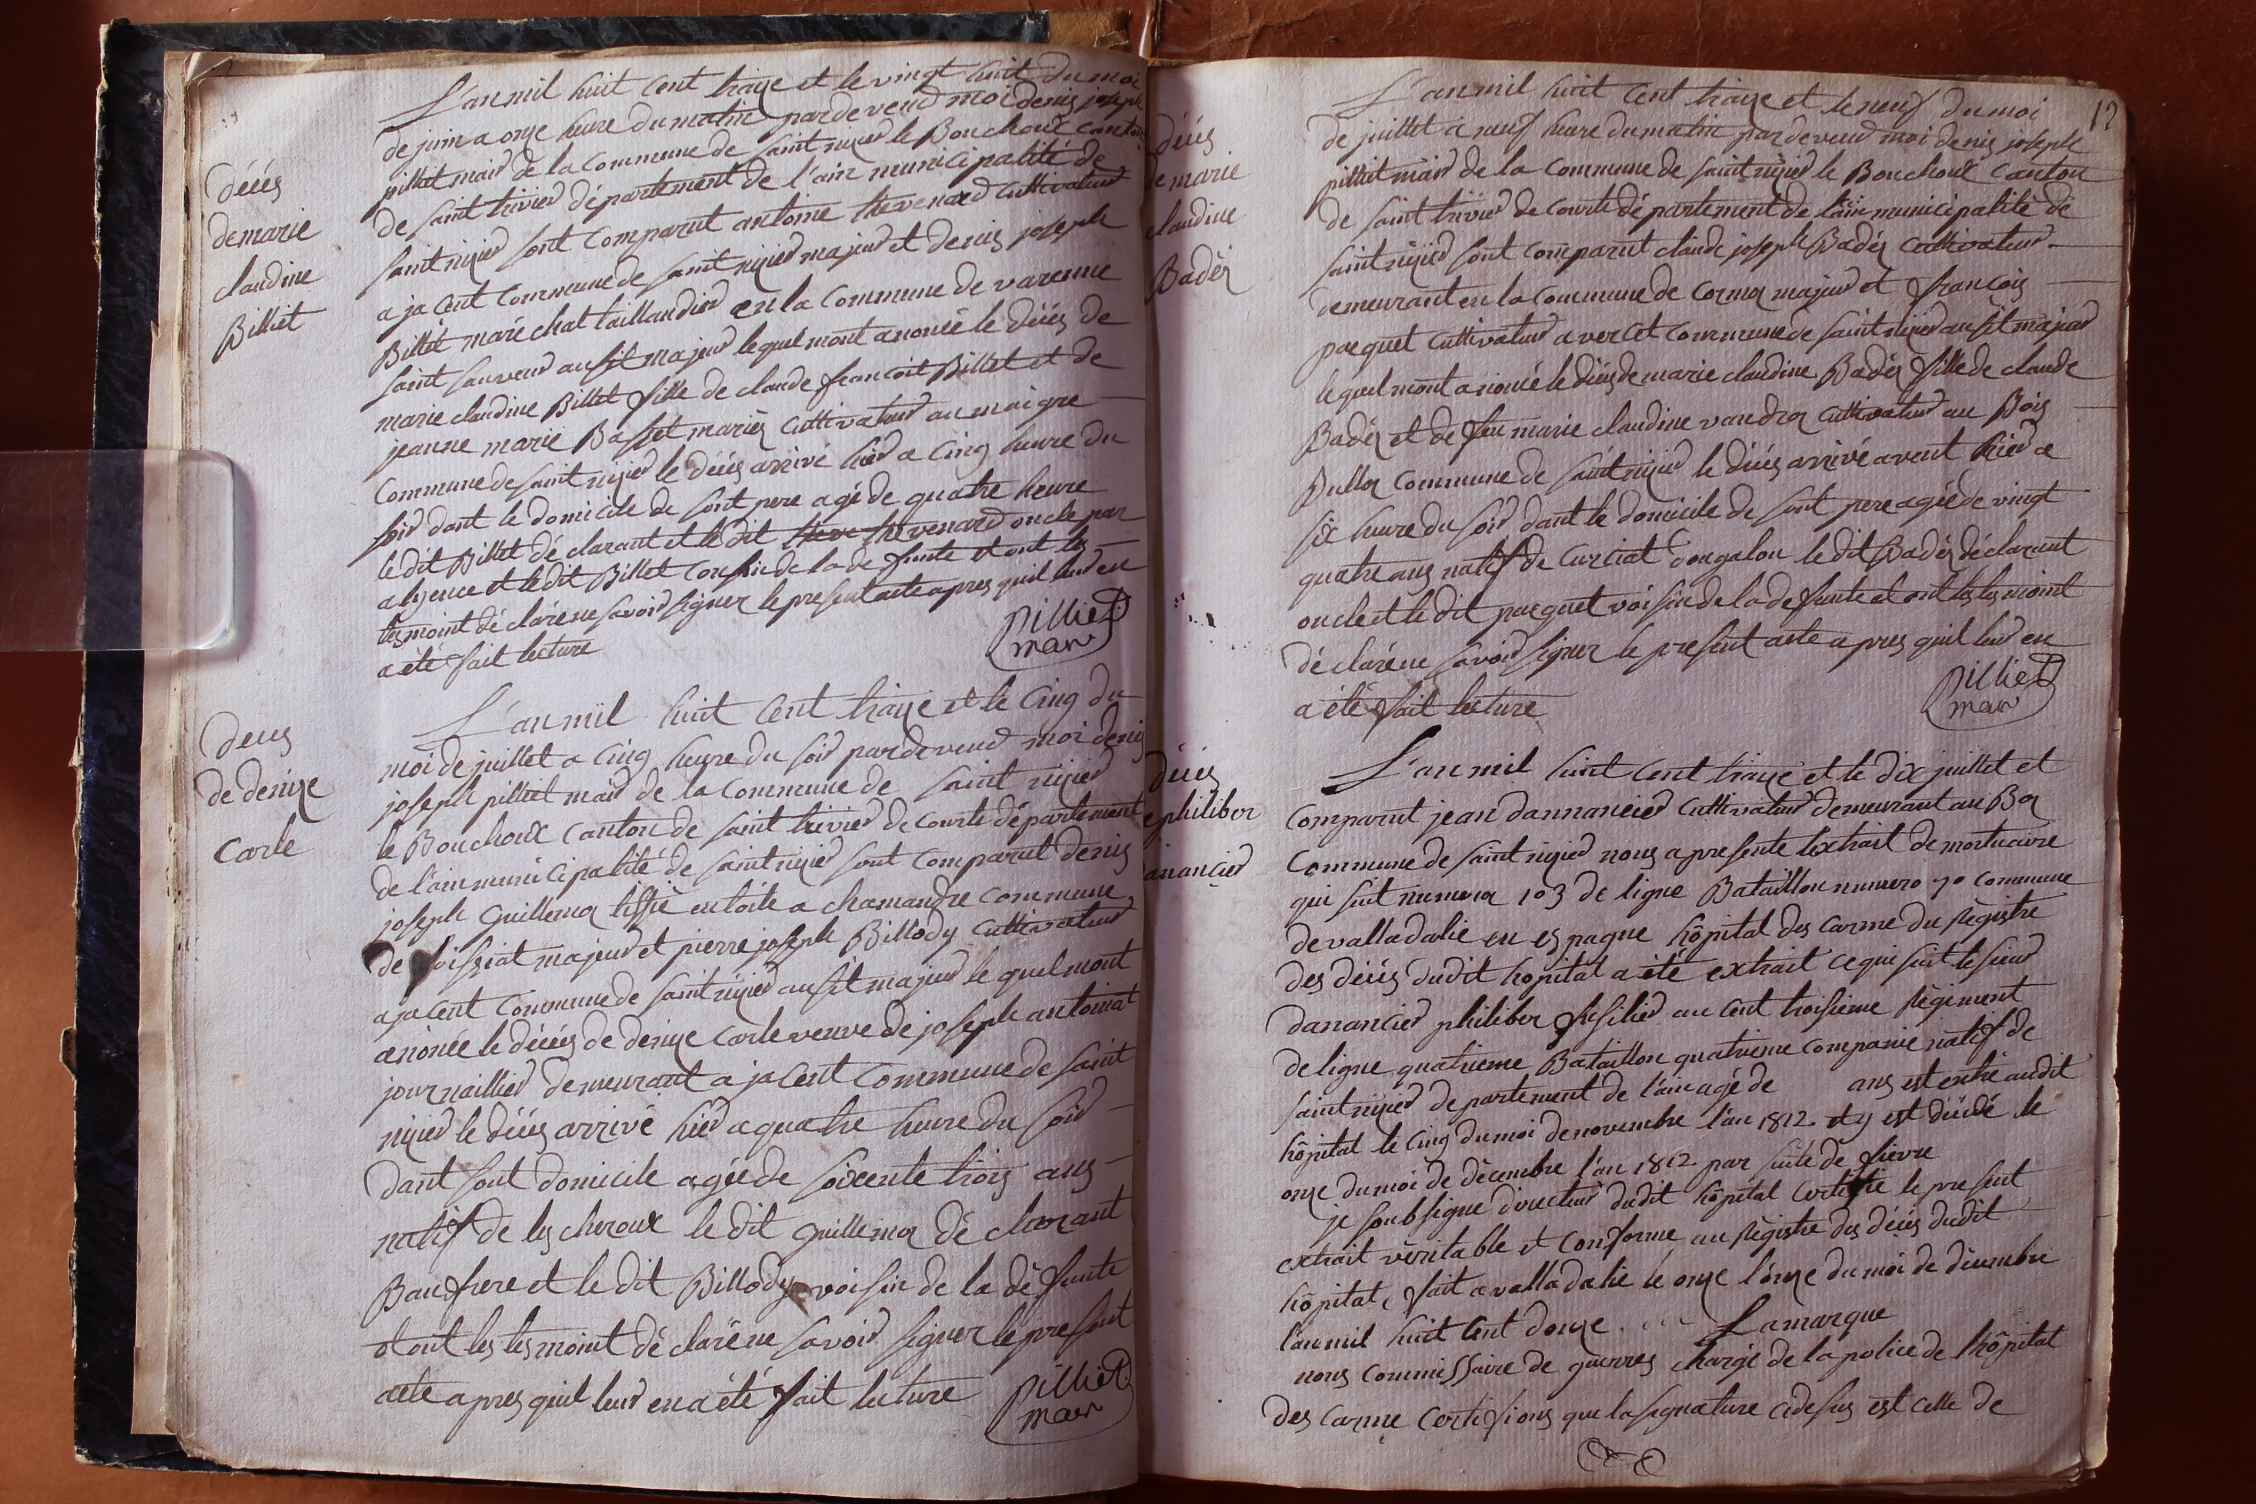 décés
de marie
claudine
Billiet
L'an mil huit cent traize et le vingt huit du moi
de juin a onze heure du matin pardevend moi denis joseph
pilliet mair de la commune de saint nizier le Bouchoux canton
de saint trivier département de l'ain municipalité de
saint nizier sont comparut antoine thevenard cultivateur
a jacent commune de saint nizier majeur et denis joseph
Billet maréchat taillandier en la commune de varenne
saint sauveur ausit majeur lequel mont anoncé le décés de
marie claudine Billet fille de claude francoit Billet et de
jeanne marie Basset mariés cultivateur au maigre
commune de saint nizier le décés arrivé hier a cinq heure du
soir dant le domicile de sont pere agé de quatre heure
le dit Billet déclarant et le dit theve thevenard oncle par
alyence et le dit Billet cousin de la defunte et ont les
tesmoint déclaré ne savoir signer le present acte apres quil leur en
a été fait lecture
pilliet
mair
deces
de denize
carle
L'an mil huit cent traize et le cinq du
moi de juillet a cinq heure du soir pardevend moi denis
joseph pilliet mair de la commune de saint nizier
le Bouchoux canton de saint trivier de courte département
de l'ain municipalité de saint nizier sont comparut denis
joseph guillemoz tissié en toile a chamandre commune
de foissiat majeur et pierre joseph Billody cultivateur
a jacent commune de saint nizier ausit majeur le quel mont
anoncé le décés de denize carle veuve de joseph antoinat
journaillier demeurant a jacent commune de saint
nizier le décés arrivé hier a quatre heure du soir
dant sont domicile agée de soixente trois ans
natif de les cheroux le dit guillemoz déclarant
Baufrere et le dit Billody voisin de la défunte
et ont les tesmoint déclaré ne savoir signer le present
acte apres quil leur en a été fait lecture
pilliet
mair
12
décés
e marie
claudine
Badéz
L'an mil huit cent traize et le neuf du moi
de juillet a neuf heure du matin pardevend moi denis joseph
pilliet mair de la commune de saint nizier le Bouchoux canton
de saint trivier de courte département de l'ain municipalité de
saint nizier sont comparut claude joseph Badéz cultivateur
demeurant en la commune de cormoz majeur et francois
paequet cultivateur a vercet commune de saint nizier ausit majeur
lequel mont anoncé le décés de marie claudine Badéz fille de claude
Badéz et de feu marie claudine vandroz cultivateur au Bois
Bulloz commune de saint nizier le décés arrivé avent hier a
six heure du soir dant le domicile de sont pere agée de vingt
quatre ans natif de curciat dongalon le dit Badéz déclarant
oncle et le dit paequet voisin de la defunte et ont les tesmoint
déclaré ne savoir signer le present acte apres quil leur en
a été fait lecture
pilliet
mair
décés
e philiber
anancier
L'an mil huit cent traize et le dix juillet et
comparut jean dannancier cultivateur demeurant au Boz
commune de saint nizier nous a presente lextrait de mortuaire
qui suit numeroz 103 de ligne Bataillon numero 70 commune
de valladalie en espagne hôpital des carme du registre
des décés dudit hopital a été extrait ce qui suit le sieur
danancier philiber fusilier au cent troisieme regiment
de ligne quatrieme Bataillon quatrieme companie natif de
saint nizier departement de l'ain agé de ans est entré audit
hôpital le cinq du moi de novembre l'an 1812. et y est décédé le
onze du moi de décembre l'an 1812 par suite de fievre
je soubsigné directeur dudit hôpital certifie le present
extrait véritable et conforme au registre des décés dudit
hôpital, fait a valladalie le onze l'onze du moi de décembre
l'an mil huit cent douze . . . Lamarque
nous commissaire de guerres chargé de la police de l'hôpital
des carme certifions que la signature cidesus est celle de